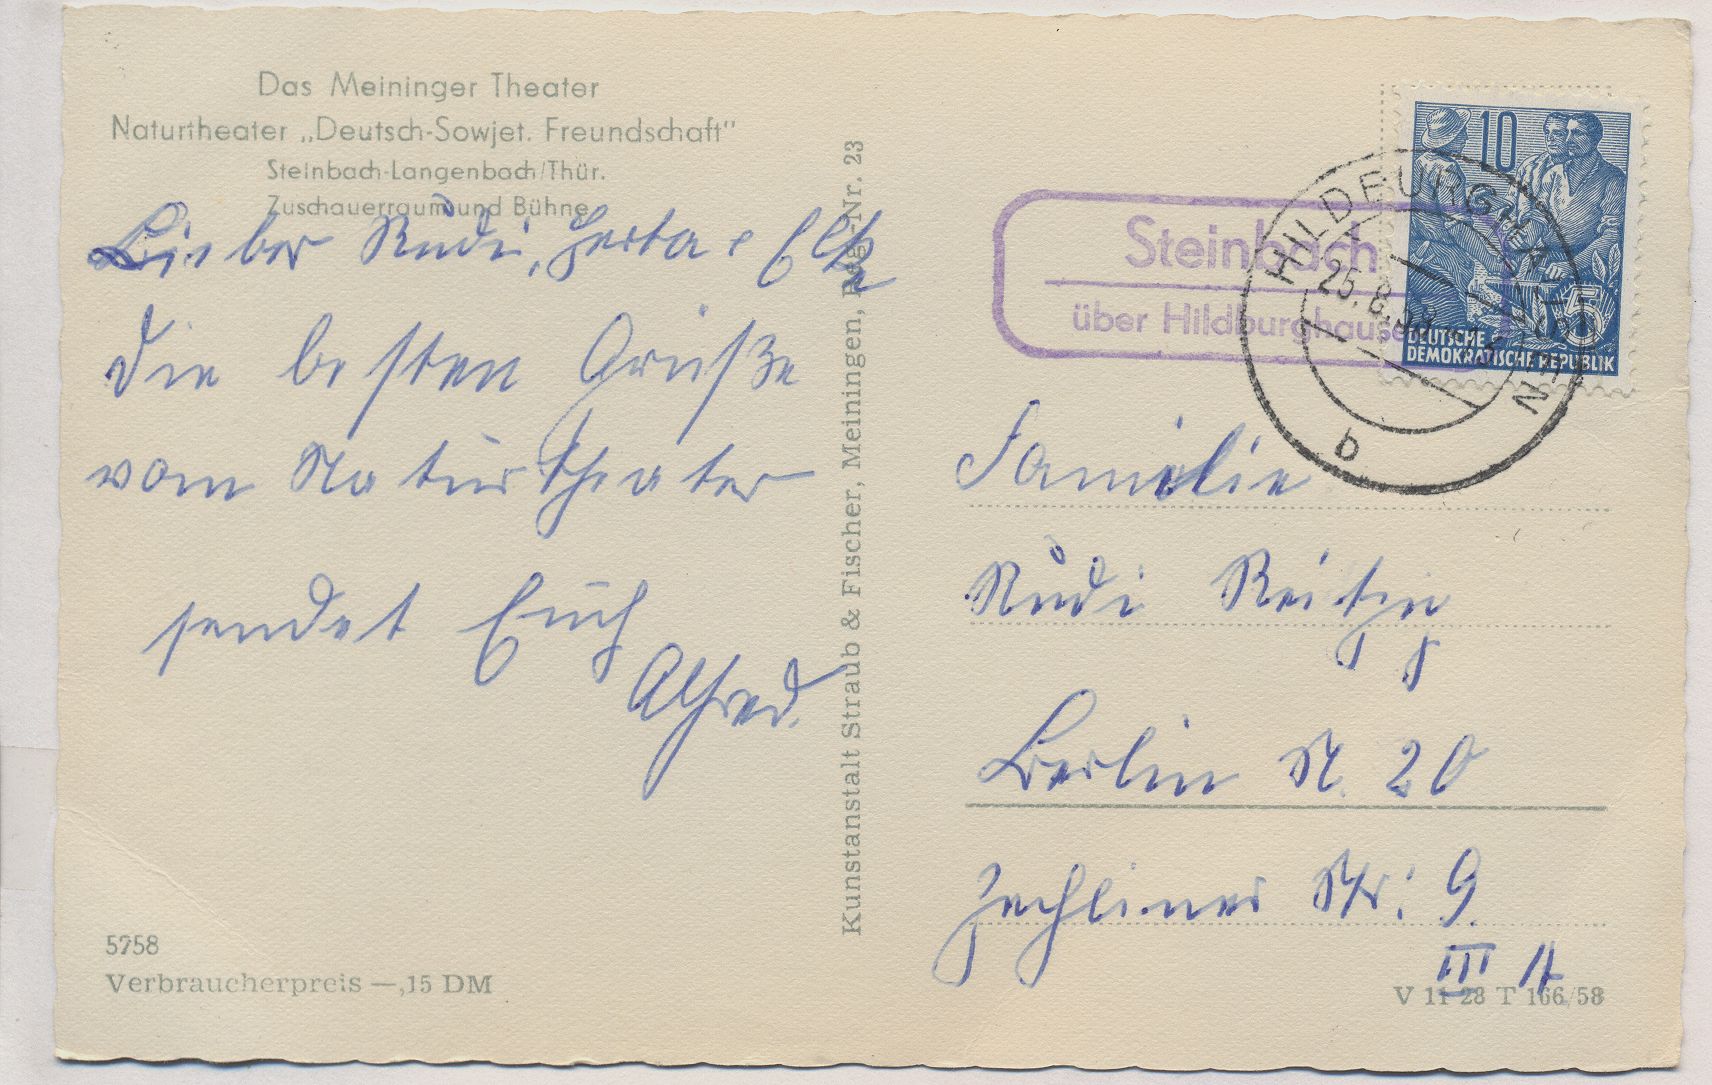 Das Meininger Theater
Naturtheater „Deutsch-Sowjet. Freundschaft"
Steinbach-Langenbach/Thür.
Zuschauerraum und Bühne
Lieber Rudi, Herta
die besten Grüße
vom Naturtheater
sendet Euch
Alfred.
5758
Verbraucherpreis —,15 DM
Kunstanstalt Straub & Fischer, Meiningen, Reg.-Nr. 23
Steinbach
über Hildburghausen
HILDBURGHAUSEN
25.8.58
b
10
5
DEUTSCHE
DEMOKRATISCHE REPUBLIK
Familie
Rudi
Berlin N. 20
Zechliner Str. 9.
III
V 11 28 T 166/58